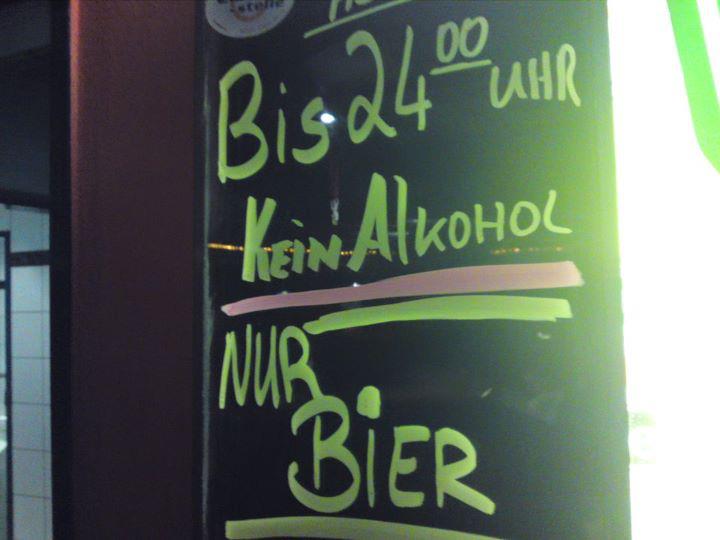 stelle
Bis 24 00 UHR
KEIN ALKOHOL
NUR
BIER